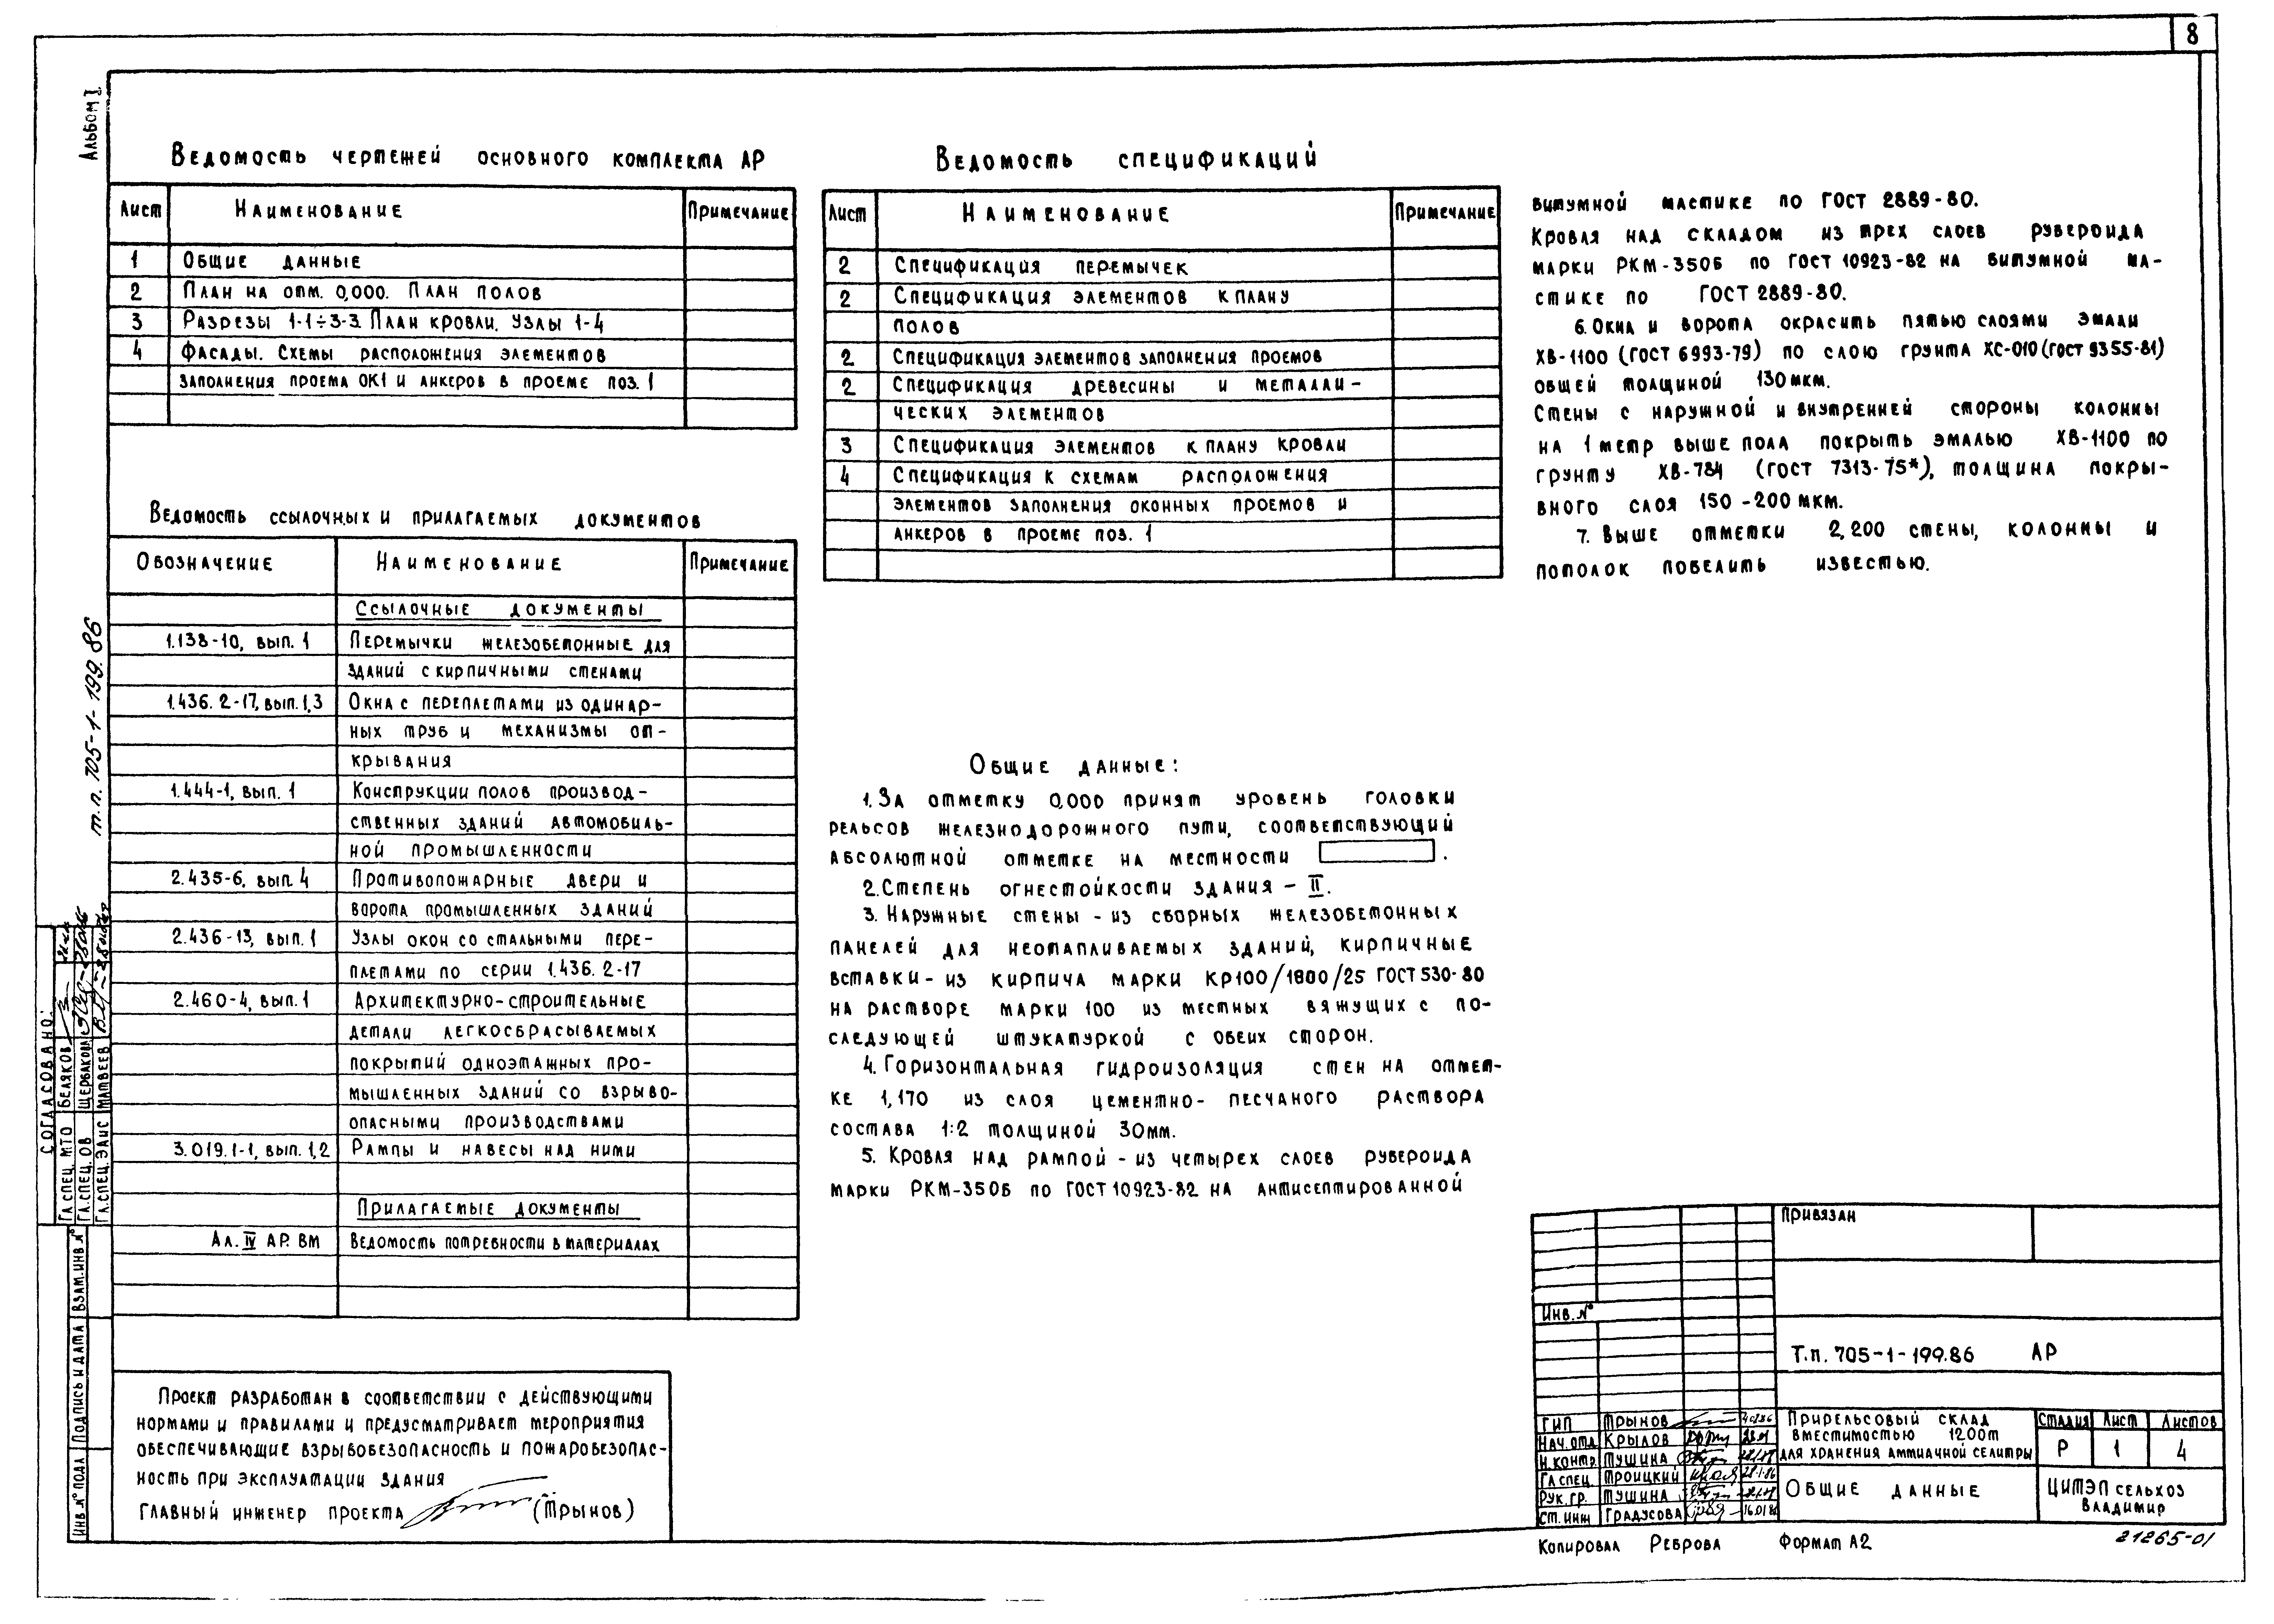 8
Альбом I
т.п. 705-1-199.86
Ведомость чертежей основного комплекта АР
Лист Наименование Примечание
1 Общие данные
2 План на отм. 0,000. План полов
3 Разрезы 1-1÷3-3. План кровли. Узлы 1-4
4 Фасады. Схемы расположения элементов
заполнения проема ОК1 и анкеров в проеме поз. 1
Ведомость ссылочных и прилагаемых документов
Обозначение Наименование Примечание
Ссылочные документы
1.138-10, вып. 1 Перемычки железобетонные для
зданий с кирпичными стенами
1.436.2-17, вып. 1,3 Окна с переплетами из одинар-
ных труб и механизмы от-
крывания
1.444-1, вып. 1 Конструкции полов производ-
ственных зданий автомобиль-
ной промышленности
2.435-6, вып. 4 Противопожарные двери и
ворота промышленных зданий
2.436-13, вып. 1 Узлы окон со стальными пере-
плетами по серии 1.436.2-17
2.460-4, вып. 1 Архитектурно-строительные
детали легкосбрасываемых
покрытий одноэтажных про-
мышленных зданий со взрыво-
опасными производствами
3.019.1-1, вып. 1,2 Рампы и навесы над ними
Прилагаемые документы
Ал. IV АР. ВМ Ведомость потребности в материалах
Проект разработан в соответствии с действующими
нормами и правилами и предусматривает мероприятия
обеспечивающие взрывобезопасность и пожаробезопас-
ность при эксплуатации здания
Главный инженер проекта (Трынов)
Ведомость спецификаций
Лист Наименование Примечание
2 Спецификация перемычек
2 Спецификация элементов к плану
полов
2 Спецификация элементов заполнения проемов
2 Спецификация древесины и металли-
ческих элементов
3 Спецификация элементов к плану кровли
4 Спецификация к схемам расположения
элементов заполнения оконных проемов и
анкеров в проеме поз. 1
Общие данные:
1. За отметку 0,000 принят уровень головки
рельсов железнодорожного пути, соответствующий
абсолютной отметке на местности .
2. Степень огнестойкости здания - II.
3. Наружные стены - из сборных железобетонных
панелей для неотапливаемых зданий, кирпичные
вставки - из кирпича марки КР100/1800/25 ГОСТ 530-80
на растворе марки 100 из местных вяжущих с по-
следующей штукатуркой с обеих сторон.
4. Горизонтальная гидроизоляция стен на отмет-
ке 1,170 из слоя цементно-песчаного раствора
состава 1:2 толщиной 30мм.
5. Кровля над рампой - из четырех слоев рубероида
марки РКМ-350Б по ГОСТ 10923-82 на антисептированной
битумной мастике по ГОСТ 2889-80.
Кровля над складом из трех слоев рубероида
марки РКМ-350Б по ГОСТ 10923-82 на битумной ма-
стике по ГОСТ 2889-80.
6. Окна и ворота окрасить пятью слоями эмали
ХВ-1100 (ГОСТ 6993-79) по слою грунта ХС-010 (ГОСТ 9355-81)
общей толщиной 130мкм.
Стены с наружной и внутренней стороны колонны
на 1 метр выше пола покрыть эмалью ХВ-1100 по
грунту ХВ-784 (ГОСТ 7313-75*), толщина покры-
вного слоя 150-200мкм.
7. Выше отметки 2,200 стены, колонны и
потолок побелить известью.
Согласовано:
Гл.спец. МТО Беляков
Гл.спец. ОВ Щербакова
Гл.спец. ЭАиС Матвеев
Инв. № подл Подпись и дата Взам. инв №
Привязан
Инв. №
Т.п. 705-1-199.86 АР
ГИП Трынов
Нач. отд Крылов
Н. контр Тушина
Гл спец. Троицкий 28.1.86
Рук. гр. Тушина
Ст. инж Градусова 16.01.86
Прирельсовый склад
вместимостью 1200т
для хранения аммиачной селитры
Стадия Лист Листов
Р 1 4
Общие данные
ЦИТЭПсельхоз
Владимир
Копировал Реброва Формат А2
21265-01